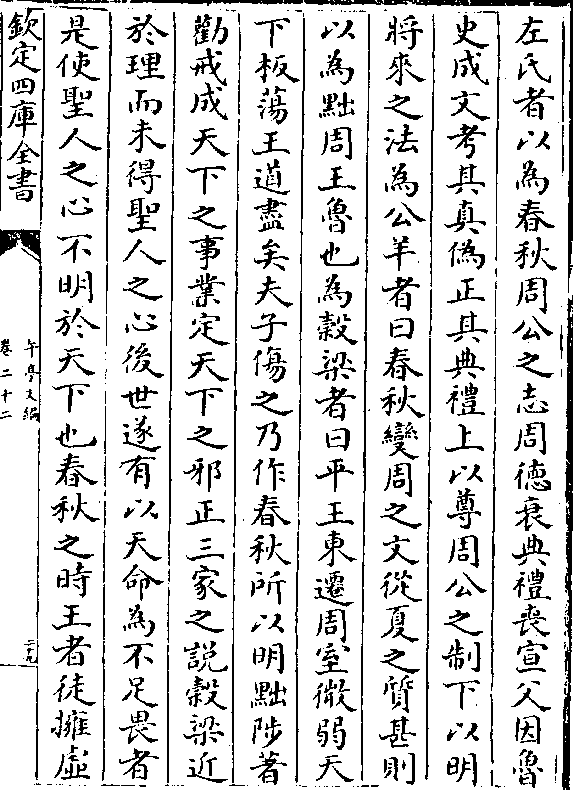 左氏者以為春秋周公之志周德衰典禮喪宣父因魯
史成文考其真偽正其典禮上以尊周公之制下以明
將來之法為公羊者曰春秋變周之文從夏之質甚則
以為黜周王魯也為糓梁者曰平王東遷周室微弱天
下板蕩王道盡矣夫子傷之乃作春秋所以明黜陟著
勸戒成天下之事業定天下之邪正三家之説糓梁近
於理而未得聖人之心後世遂有以天命為不足畏者
是使聖人之心不明於天下也春秋之時王者徒擁虛
欽定四庫全書
午亭文編
卷二十二
二十九